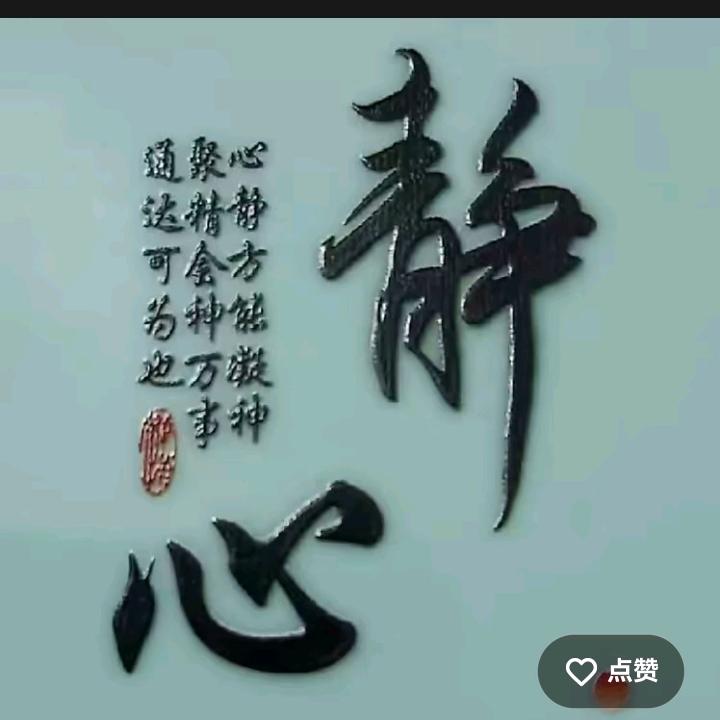 静
心
心静方能凝神
聚精会神万事
通达可为也
点赞